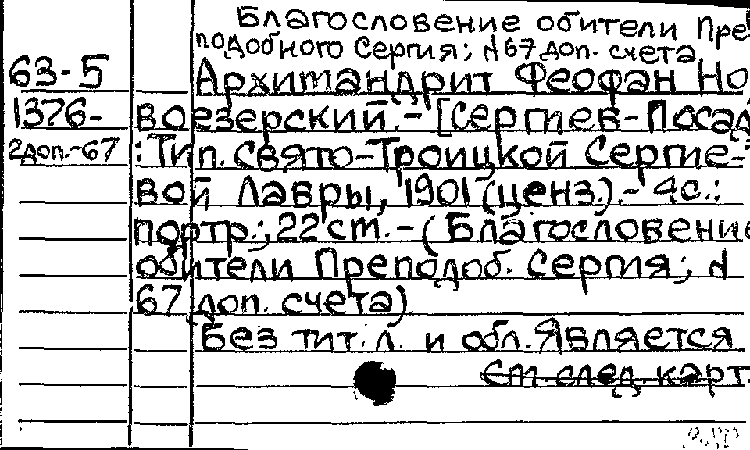 Благословение обители Пре
подобного Сергия; № 67 доп. счета
63-5 Архимандрит Феофан Но
1376- воезерский.- [Сергиев-Посад
2доп.-67 : Тип. Свято-Троицкой Сергие-
вой Лавры, 1901 (ценз.).- 4с.:
портр.; 22 ст.-( Благословение
обители Преподоб. Сергия; №
67 доп. счета)
Без тит. л. и обл. Является
См. след. карт.